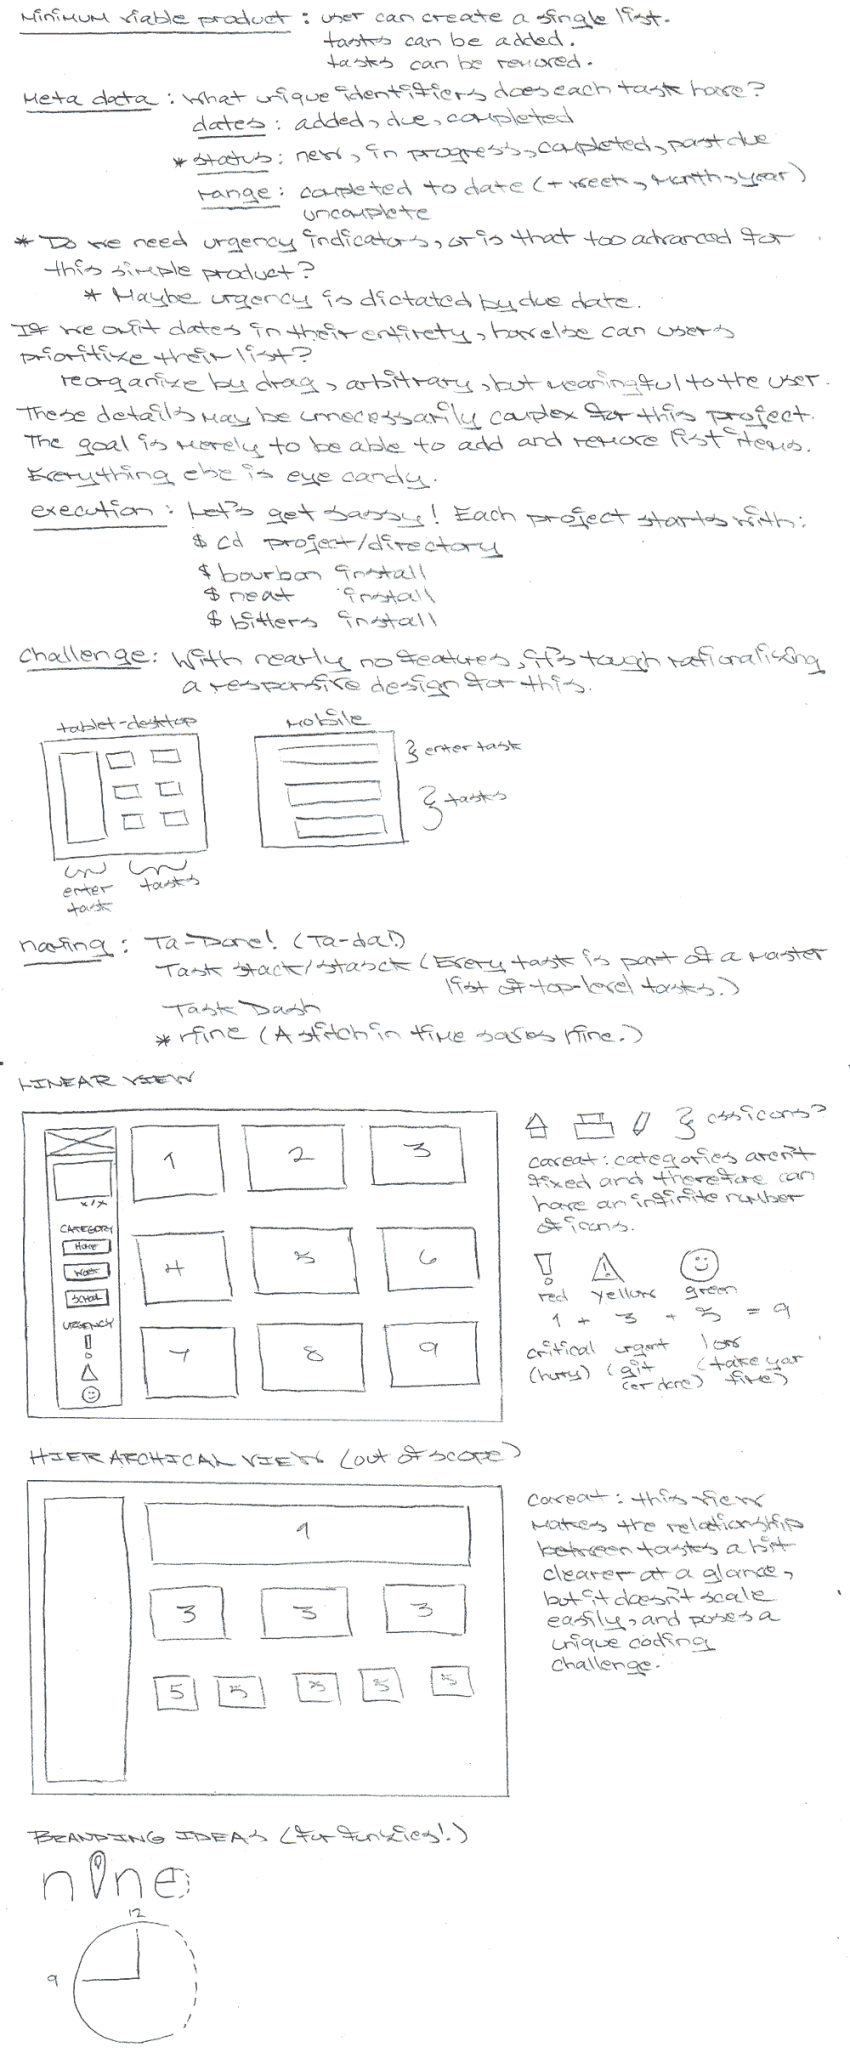 Minimum viable product: user can create a single list.
tasks can be added.
tasks can be removed.
Meta data: What unique identifiers does each task have?
dates: added, due, completed
* status: new, in progress, completed, past due
range: completed to date (+ week, month, year)
uncomplete
* Do we need urgency indicators, or is that too advanced for
this simple product?
* Maybe urgency is dictated by due date.
If we omit dates in their entirety, how else can users
prioritize their list?
reorganize by drag, arbitrary, but meaningful to the user.
These details may be unnecessarily complex for this project.
The goal is merely to be able to add and remove list items.
Everything else is eye candy.
execution: Let's get sassy! Each project starts with:
$ cd project/directory
$ bourbon install
$ neat install
$ bitters install
challenge: With nearly no features, it's tough rationalizing
a responsive design for this.
tablet-desktop
Mobile
} enter task
} tasks
enter
task
tasks
naming: Ta-Done! (Ta-da!)
Task stack/stasck (Every task is part of a master
list of top-level tasks.)
Task Dash
* nine (A stitch in time saves nine.)
LINEAR VIEW
1 2 3
x/x
CATEGORY
Home
Work
School
URGENCY
4 5 6
7 8 9
} css icons?
caveat: categories aren't
fixed and therefore can
have an infinite number
of icons.
red yellow green
1 + 3 + 5 = 9
critical urgent low
(hurry) (git (take your
'er done) time)
HIERARCHICAL VIEW (out of scope)
1
3 3 3
5 5 5 5 5
caveat: this view
makes the relationship
between tasks a bit
clearer at a glance,
but it doesn't scale
easily, and poses a
unique coding
challenge.
BRANDING IDEAS (for funsies!)
nine
12
9